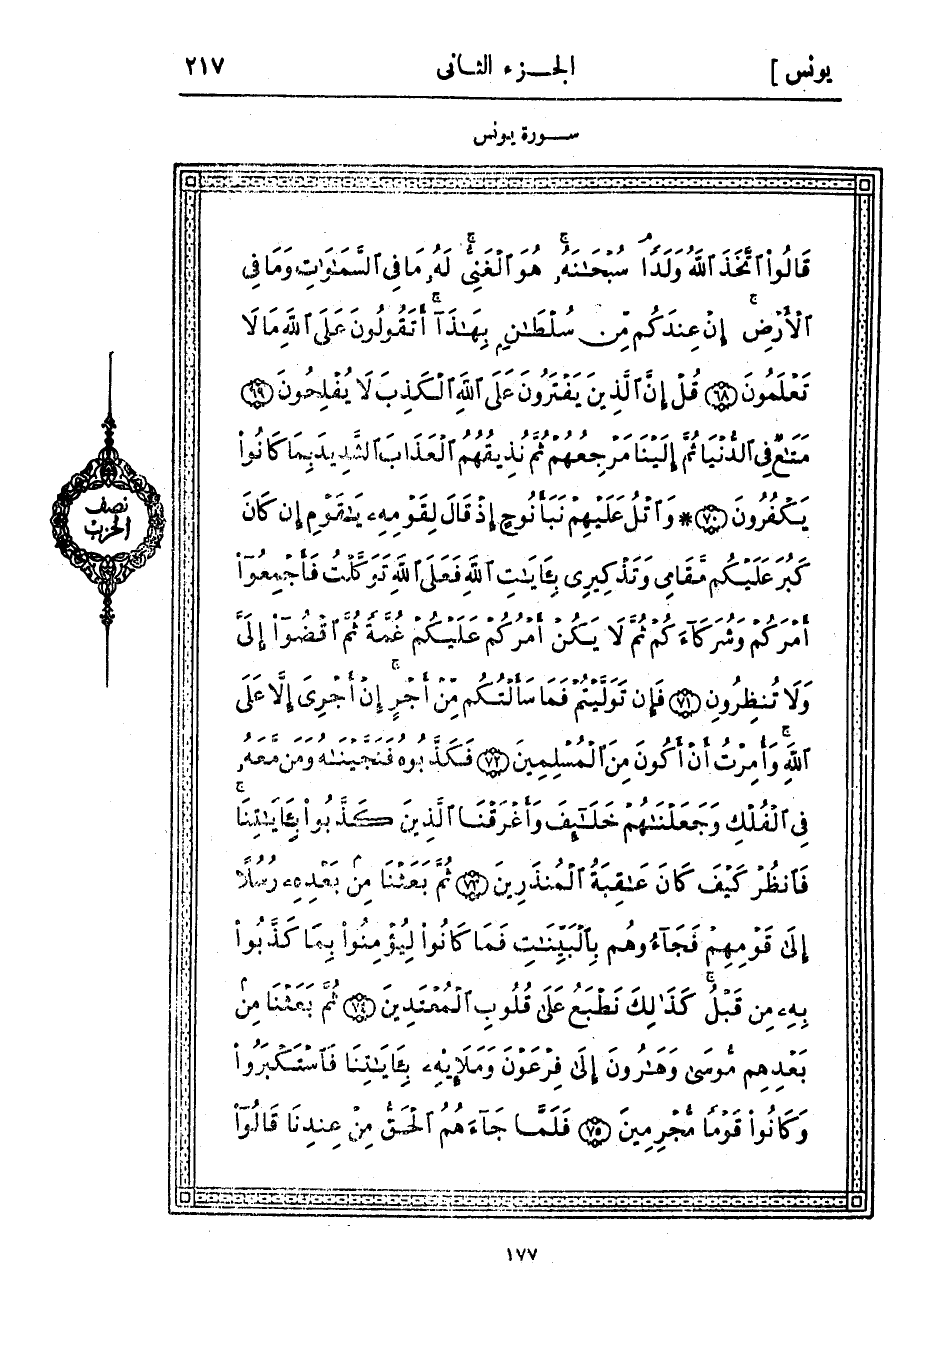 يونس ] الجــزء الثــانى ٢١٧
ســورة يونس
قَالُوا۟ ٱتَّخَذَ ٱللَّهُ وَلَدًۭا ۗ سُبْحَـٰنَهُۥ ۖ هُوَ ٱلْغَنِىُّ ۖ لَهُۥ مَا فِى ٱلسَّمَـٰوَٰتِ وَمَا فِى
ٱلْأَرْضِ ۚ إِنْ عِندَكُم مِّن سُلْطَـٰنٍۭ بِهَـٰذَآ ۚ أَتَقُولُونَ عَلَى ٱللَّهِ مَا لَا
تَعْلَمُونَ ٦٨ قُلْ إِنَّ ٱلَّذِينَ يَفْتَرُونَ عَلَى ٱللَّهِ ٱلْكَذِبَ لَا يُفْلِحُونَ ٦٩
مَتَـٰعٌۭ فِى ٱلدُّنْيَا ثُمَّ إِلَيْنَا مَرْجِعُهُمْ ثُمَّ نُذِيقُهُمُ ٱلْعَذَابَ ٱلشَّدِيدَ بِمَا كَانُوا۟
يَكْفُرُونَ ٧٠ * وَٱتْلُ عَلَيْهِمْ نَبَأَ نُوحٍ إِذْ قَالَ لِقَوْمِهِۦ يَـٰقَوْمِ إِن كَانَ
نصف
الحزب
كَبُرَ عَلَيْكُم مَّقَامِى وَتَذْكِيرِى بِـَٔايَـٰتِ ٱللَّهِ فَعَلَى ٱللَّهِ تَوَكَّلْتُ فَأَجْمِعُوٓا۟
أَمْرَكُمْ وَشُرَكَآءَكُمْ ثُمَّ لَا يَكُنْ أَمْرُكُمْ عَلَيْكُمْ غُمَّةًۭ ثُمَّ ٱقْضُوٓا۟ إِلَىَّ
وَلَا تُنظِرُونِ ٧١ فَإِن تَوَلَّيْتُمْ فَمَا سَأَلْتُكُم مِّنْ أَجْرٍ ۖ إِنْ أَجْرِىَ إِلَّا عَلَى
ٱللَّهِ ۖ وَأُمِرْتُ أَنْ أَكُونَ مِنَ ٱلْمُسْلِمِينَ ٧٢ فَكَذَّبُوهُ فَنَجَّيْنَـٰهُ وَمَن مَّعَهُۥ
فِى ٱلْفُلْكِ وَجَعَلْنَـٰهُمْ خَلَـٰٓئِفَ وَأَغْرَقْنَا ٱلَّذِينَ كَذَّبُوا۟ بِـَٔايَـٰتِنَا ۖ
فَٱنظُرْ كَيْفَ كَانَ عَـٰقِبَةُ ٱلْمُنذَرِينَ ٧٣ ثُمَّ بَعَثْنَا مِنۢ بَعْدِهِۦ رُسُلًا
إِلَىٰ قَوْمِهِمْ فَجَآءُوهُم بِٱلْبَيِّنَـٰتِ فَمَا كَانُوا۟ لِيُؤْمِنُوا۟ بِمَا كَذَّبُوا۟
بِهِۦ مِن قَبْلُ ۚ كَذَٰلِكَ نَطْبَعُ عَلَىٰ قُلُوبِ ٱلْمُعْتَدِينَ ٧٤ ثُمَّ بَعَثْنَا مِنۢ
بَعْدِهِم مُّوسَىٰ وَهَـٰرُونَ إِلَىٰ فِرْعَوْنَ وَمَلَإِيْهِۦ بِـَٔايَـٰتِنَا فَٱسْتَكْبَرُوا۟
وَكَانُوا۟ قَوْمًۭا مُّجْرِمِينَ ٧٥ فَلَمَّا جَآءَهُمُ ٱلْحَقُّ مِنْ عِندِنَا قَالُوٓا۟
١٧٧